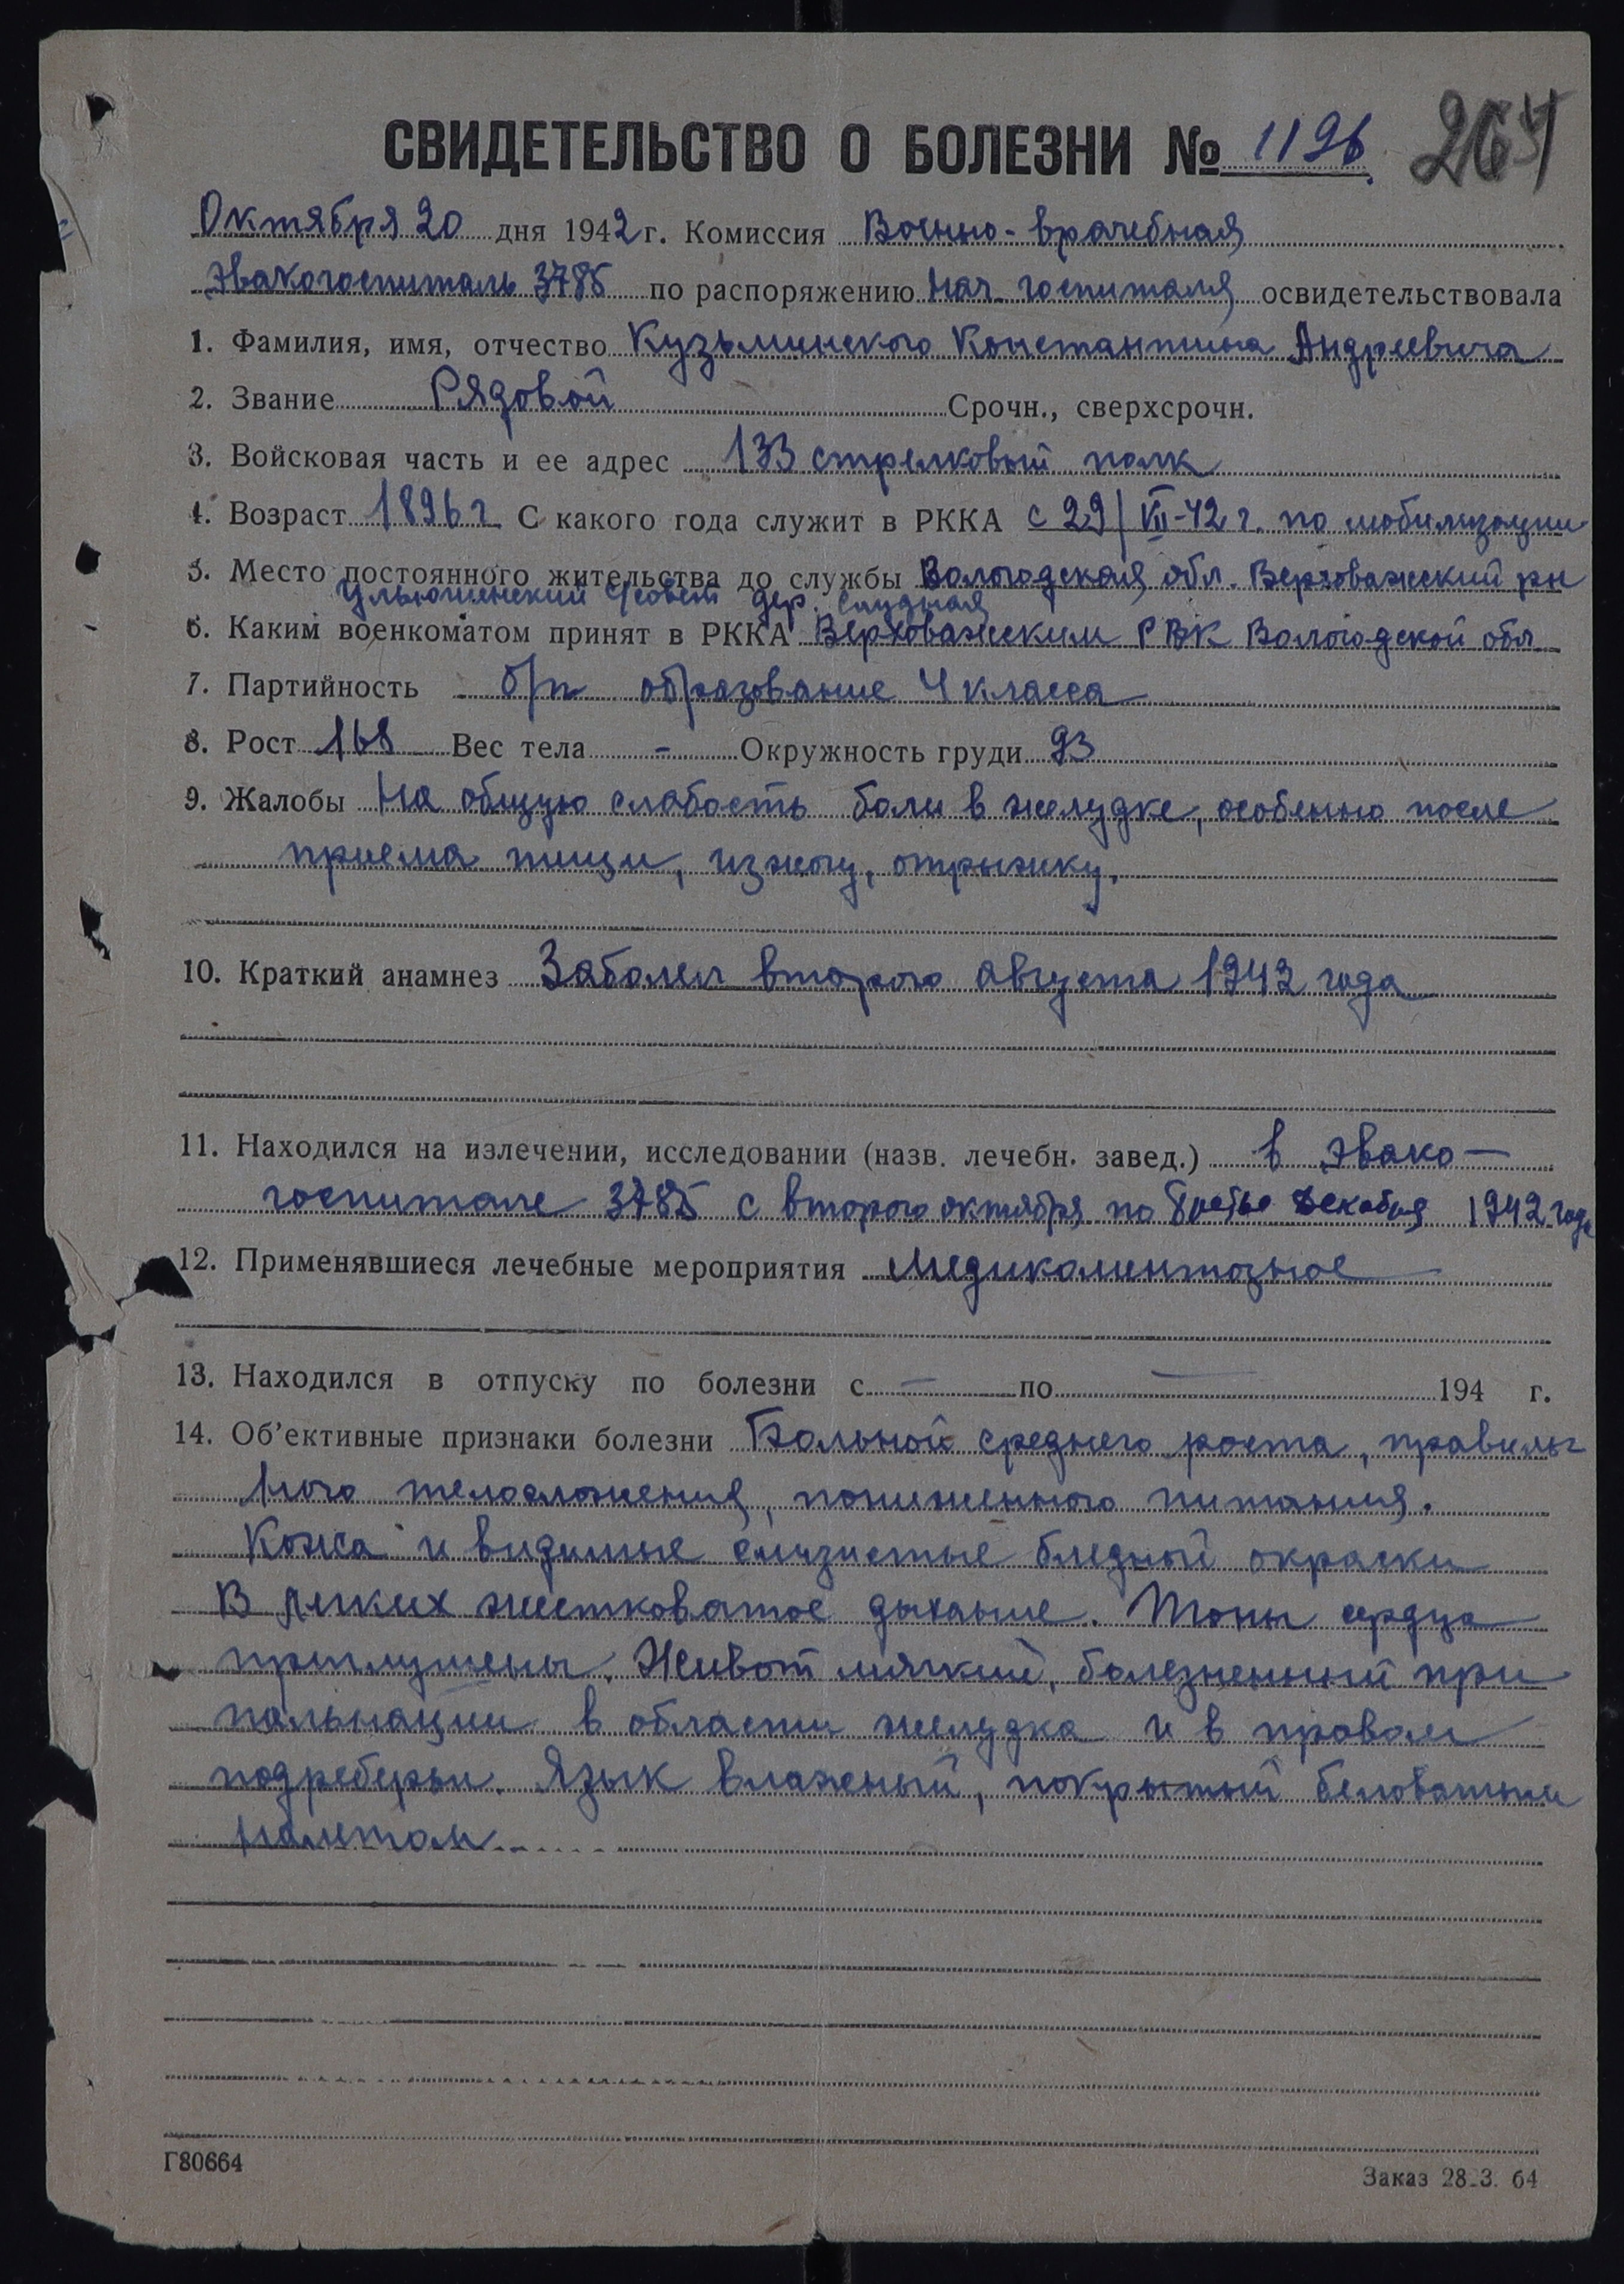 СВИДЕТЕЛЬСТВО О БОЛЕЗНИ № 1196
Октября 20 дня 1942 г. Комиссия Военно-врачебная
Эвакогоспиталь 3785 по распоряжению Нач. госпиталя освидетельствовала
1. Фамилия, имя, отчество Кузьминского Константина Андреевича
2. Звание Рядовой Срочн., сверхсрочн.
3. Войсковая часть и ее адрес 133 стрелковый полк
4. Возраст 1896 г. С какого года служит в РККА с 29/VII-42 г. по мобилизации
5. Место постоянного жительства до службы Вологодская обл. Верховажский рн
с/совет дер.
6. Каким военкоматом принят в РККА Верховажским РВК Вологодской обл
7. Партийность б/п образование 4 класса
8. Рост 168 Вес тела - Окружность груди 93
9. Жалобы На общую слабость боли в желудке, особенно после
приема пищи, изжогу, отрыжку.
10. Краткий анамнез Заболел второго августа 1942 года
11. Находился на излечении, исследовании (назв. лечебн. завед.) в Эвако-
госпитале 3785 с второго октября по третье декабря 1942 года
12. Применявшиеся лечебные мероприятия Медикаментозное
13. Находился в отпуску по болезни с — по — 194 г.
14. Об'ективные признаки болезни Больной среднего роста, правиль
ного телосложения, пониженного питания.
Кожа и видимые слизистые бледной окраски
В легких жестковатое дыхание. Тоны сердца
приглушены. Живот мягкий, болезненный при
пальпации в области желудка и в правом
подреберьи. Язык влажный, покрытый беловатым
налетом
Г80664
Заказ 28.3. 64